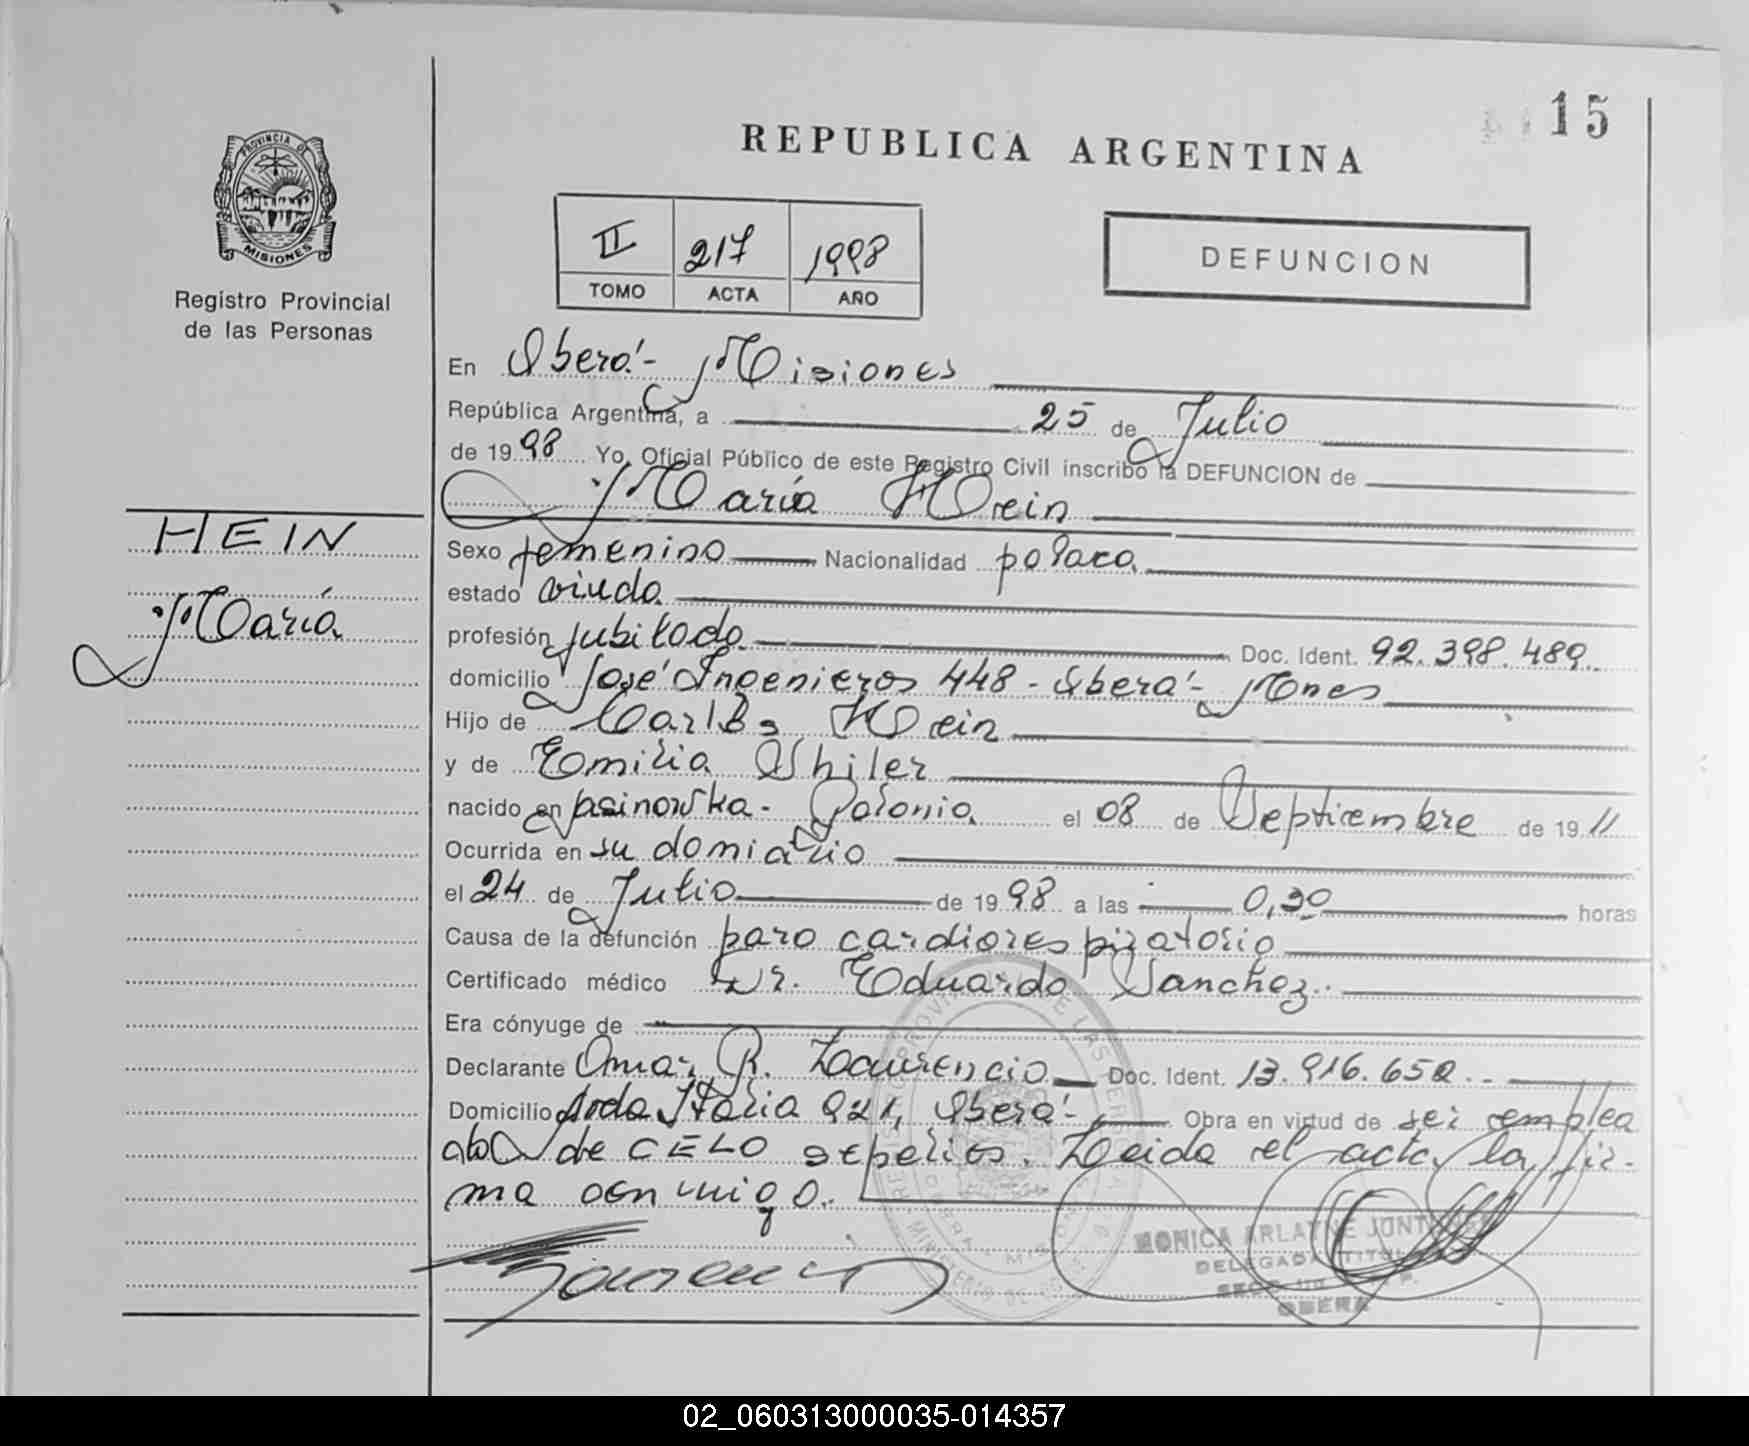 15
REPUBLICA ARGENTINA
PROVINCIA DE
MISIONES
Registro Provincial
de las Personas
II 217 1998
TOMO ACTA AÑO
DEFUNCION
En Oberá - Misiones
República Argentina, a 25 de Julio
de 1998 Yo, Oficial Público de este Registro Civil inscribo la DEFUNCION de
María Hein
HEIN
María
Sexo femenino Nacionalidad polaca
estado viuda
profesión jubilada Doc. Ident. 92.398.489.
domicilio José Ingenieros 448 - Oberá - Mnes
Hijo de Carlos Hein
y de Emilia Shiler
nacido en Polonia el 08 de Septiembre de 1911
Ocurrida en su domicilio
el 24 de Julio de 1998 a las 0,30 horas
Causa de la defunción paro cardiorespiratorio
Certificado médico Dr. Eduardo Sanchez.
Era cónyuge de
Declarante Omar R. Laurencio Doc. Ident. 13.916.652.
Domicilio Avda Italia 921, Oberá - Obra en virtud de ser emplea
do de CELO sepelios. Leida el acta, la fir-
ma conmigo.
MONICA ARLAYNE
DELEGADA TITULAR
OBERA
02_060313000035-014357